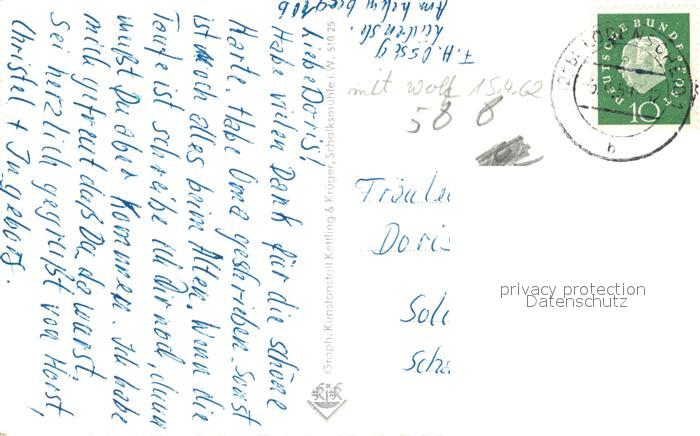 Liebe Doris!
Habe vielen Dank für die schöne
Karte. Habe Oma geschrieben. Sonst
ist noch alles beim Alten. Wenn die
Taufe ist schreibe ich Dir noch, dann
mußt Du aber kommen. Ich habe
mich gefreut daß Du da warst.
Sei herzlich gegrüßt von Horst,
Christel + Ingeborg.
Graph. Kunstanstalt Kettling & Krüger, Schalksmühle i. W. 510 25
KK
mit Wolf 15.4.62
588
DEUTSCHE BUNDESPOST
10
b
Fräulei
Doris
Sol
Sch
privacy protection
Datenschutz